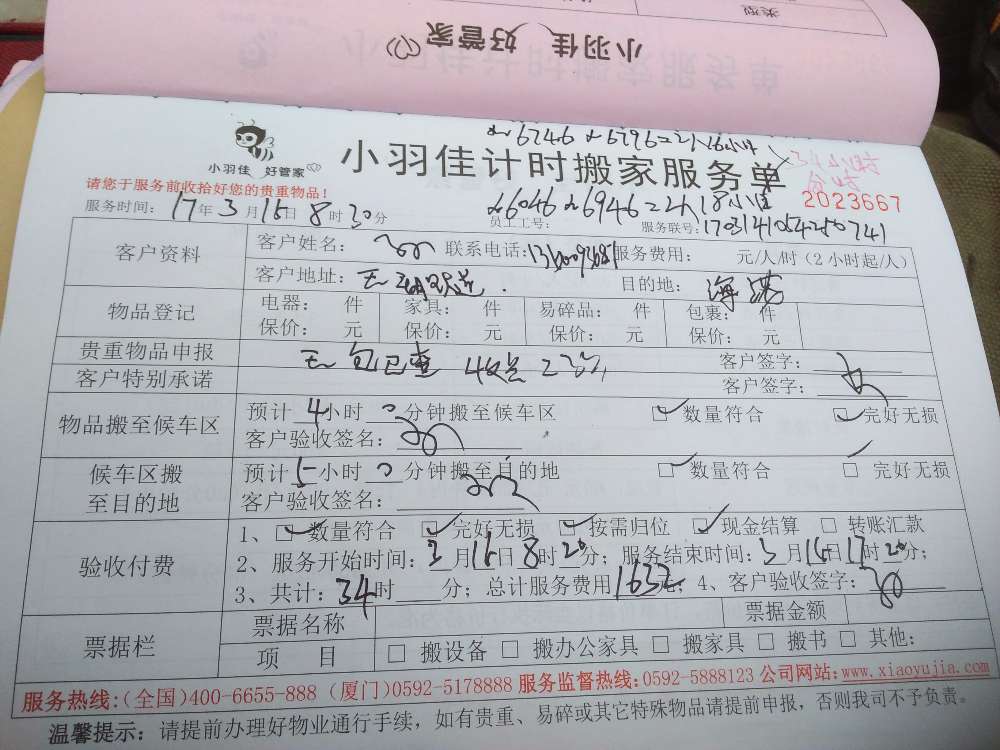 小羽佳 好管家
小羽佳计时搬家服务单
小羽佳 好管家
请您于服务前收拾好您的贵重物品！
2023667
服务时间： 17年3月15日8时30分 员工工号： 服务联号：
客户资料
客户姓名： 联系电话： 服务费用： 元/人/时（2小时起/人）
客户地址： 目的地： 海沧
物品登记
电器： 件 家具： 件 易碎品： 件 包裹： 件
保价： 元 保价： 元 保价： 元 保价： 元
贵重物品申报 无 包已查 客户签字：
客户特别承诺 客户签字：
物品搬至候车区
预计4小时0分钟搬至候车区 数量符合 完好无损
客户验收签名：
候车区搬至目的地
预计5小时0分钟搬至目的地 数量符合 完好无损
客户验收签名：
验收付费
1、 数量符合 完好无损 按需归位 现金结算 转账汇款
2、服务开始时间：3月15日8时20分；服务结束时间：3月15日17时20分；
3、共计：34时 分；总计服务费用1632元；4、客户验收签字：
票据栏
票据名称 票据金额
项 目 搬设备 搬办公家具 搬家具 搬书 其他：
服务热线：(全国)400-6655-888 (厦门)0592-5178888 服务监督热线：0592-5888123 公司网站：www.xiaoyujia.com
温馨提示： 请提前办理好物业通行手续，如有贵重、易碎或其它特殊物品请提前申报，否则我司不予负责。